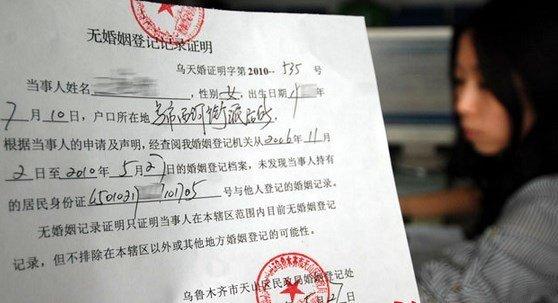 无婚姻登记记录证明
乌天婚证明字第2010--535号
当事人姓名 ，性别女，出生日期 年
7月10日，户口所在地
根据当事人的申请及声明，经查阅我婚姻登记机关从2006年11月
2日至2010年5月27日的婚姻登记档案，未发现当事人持有
的居民身份证 号与他人登记的婚姻记录。
无婚姻记录证明只证明当事人在本辖区范围内目前无婚姻登记
记录，但不排除在本辖区以外或其他地方婚姻登记的可能性。
乌鲁木齐市天山区民政局婚姻登记处